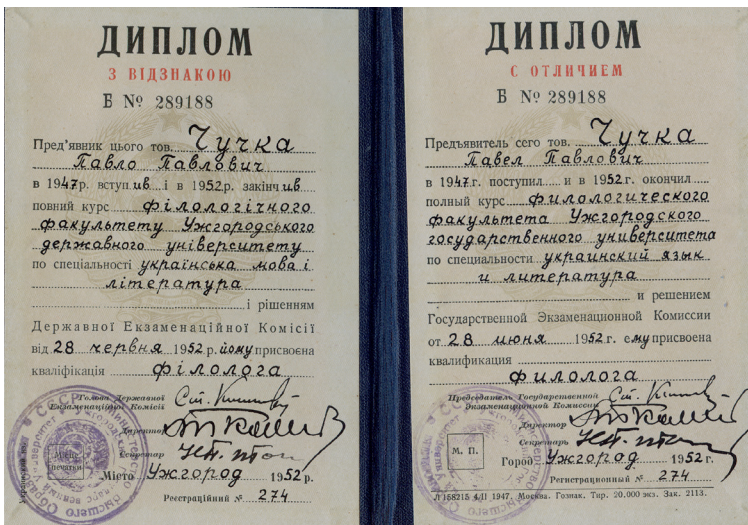 ДИПЛОМ
З ВІДЗНАКОЮ
Б № 289188
Пред'явник цього тов. Чучка
Павло Павлович
в 1947р. вступив і в 1952р. закінчив
повний курс філологічного
факультету Ужгородського
державного університету
по спеціальності українська мова і
література
і рішенням
Державної Екзаменаційної Комісії
від 28 червня 1952 р. йому присвоєна
кваліфікація філолога
Голова Державної
Екзаменаційної Комісії
Директор
Секретар
Місто Ужгород 1952р.
Реєстраційний № 274
ДИПЛОМ
С ОТЛИЧИЕМ
Б № 289188
Предъявитель сего тов. Чучка
Павел Павлович
в 1947г. поступил и в 1952г. окончил
полный курс филологического
факультета Ужгородского
государственного университета
по специальности украинский язык
и литература
и решением
Государственной Экзаменационной Комиссии
от 28 июня 1952 г. ему присвоена
квалификация
филолога
Председатель Государственной
Экзаменационной Комиссии
Директор
Секретарь
М. П.
Город Ужгород 1952г.
Регистрационный № 274
Л158215 4/II 1947. Москва. Гознак. Тир. 20.000 экз. Зак. 2113.